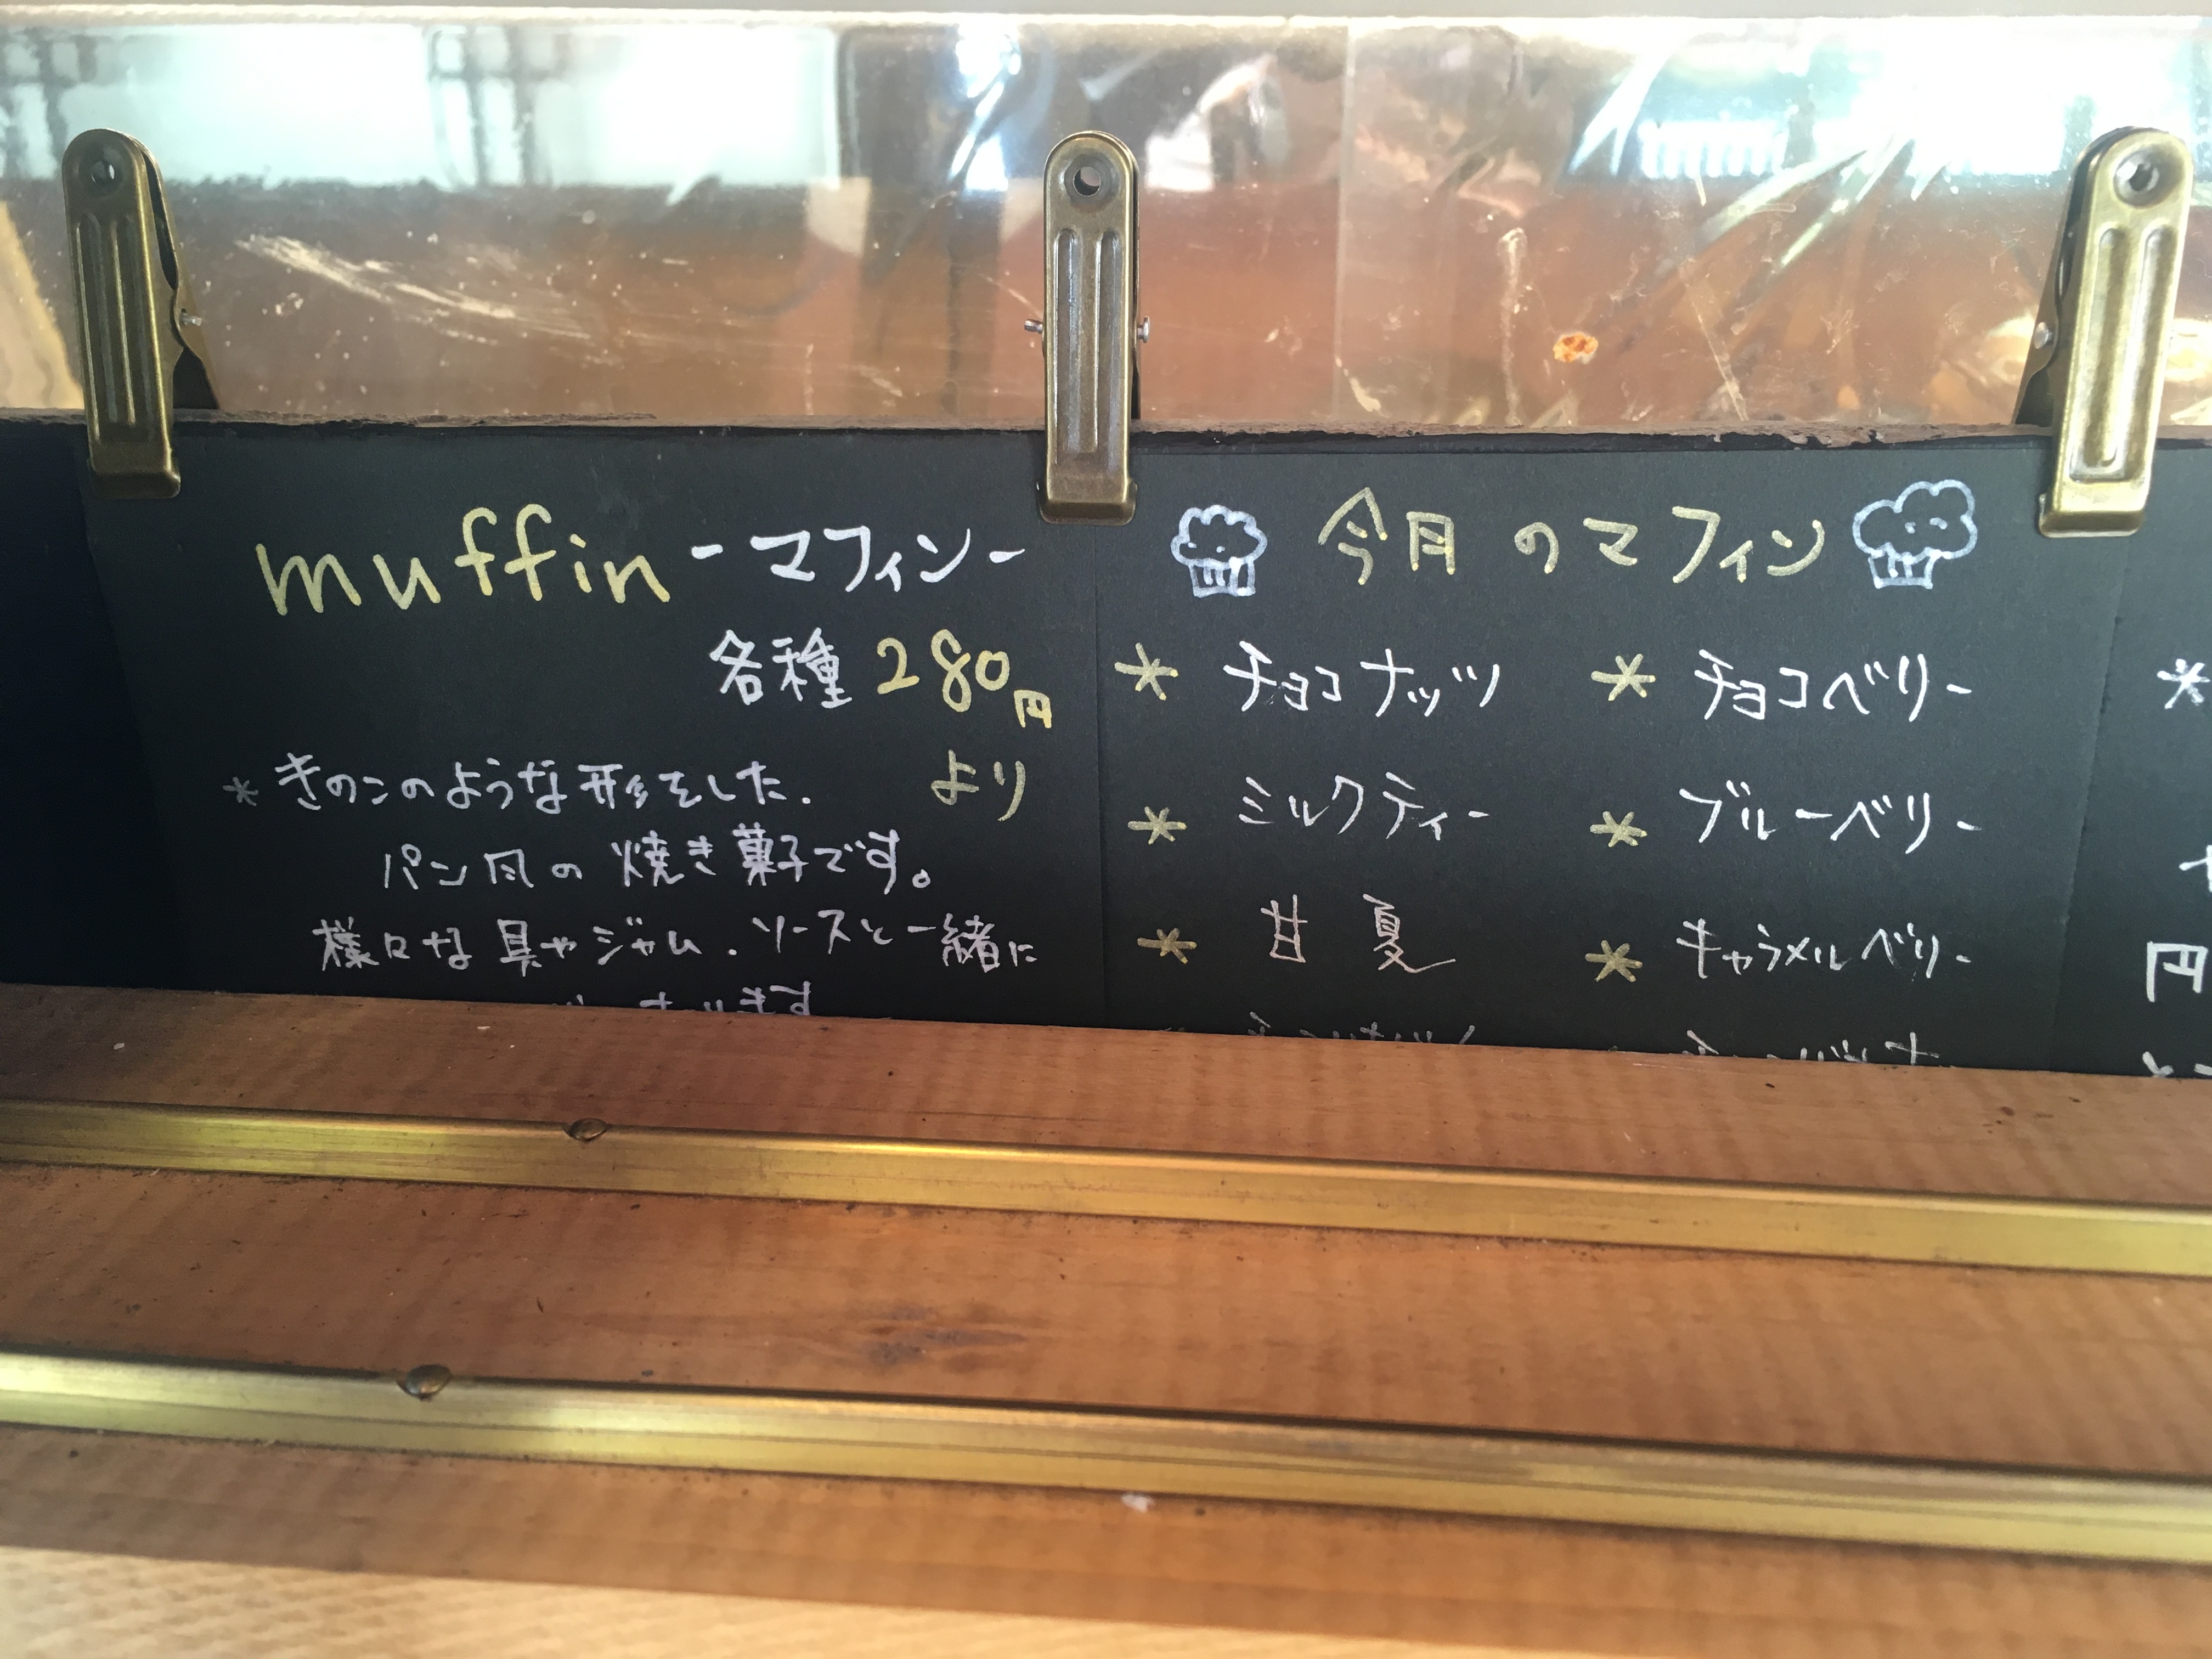 muffin -マフィン-
各種 280円
より
* きのこのような形をした.
パン風の焼き菓子です。
様々な具やジャム.ソースと一緒に
今月のマフィン
* チョコナッツ
* チョコベリー
* ミルクティー
* ブルーベリー
* 甘夏
* キャラメルベリー
*
円